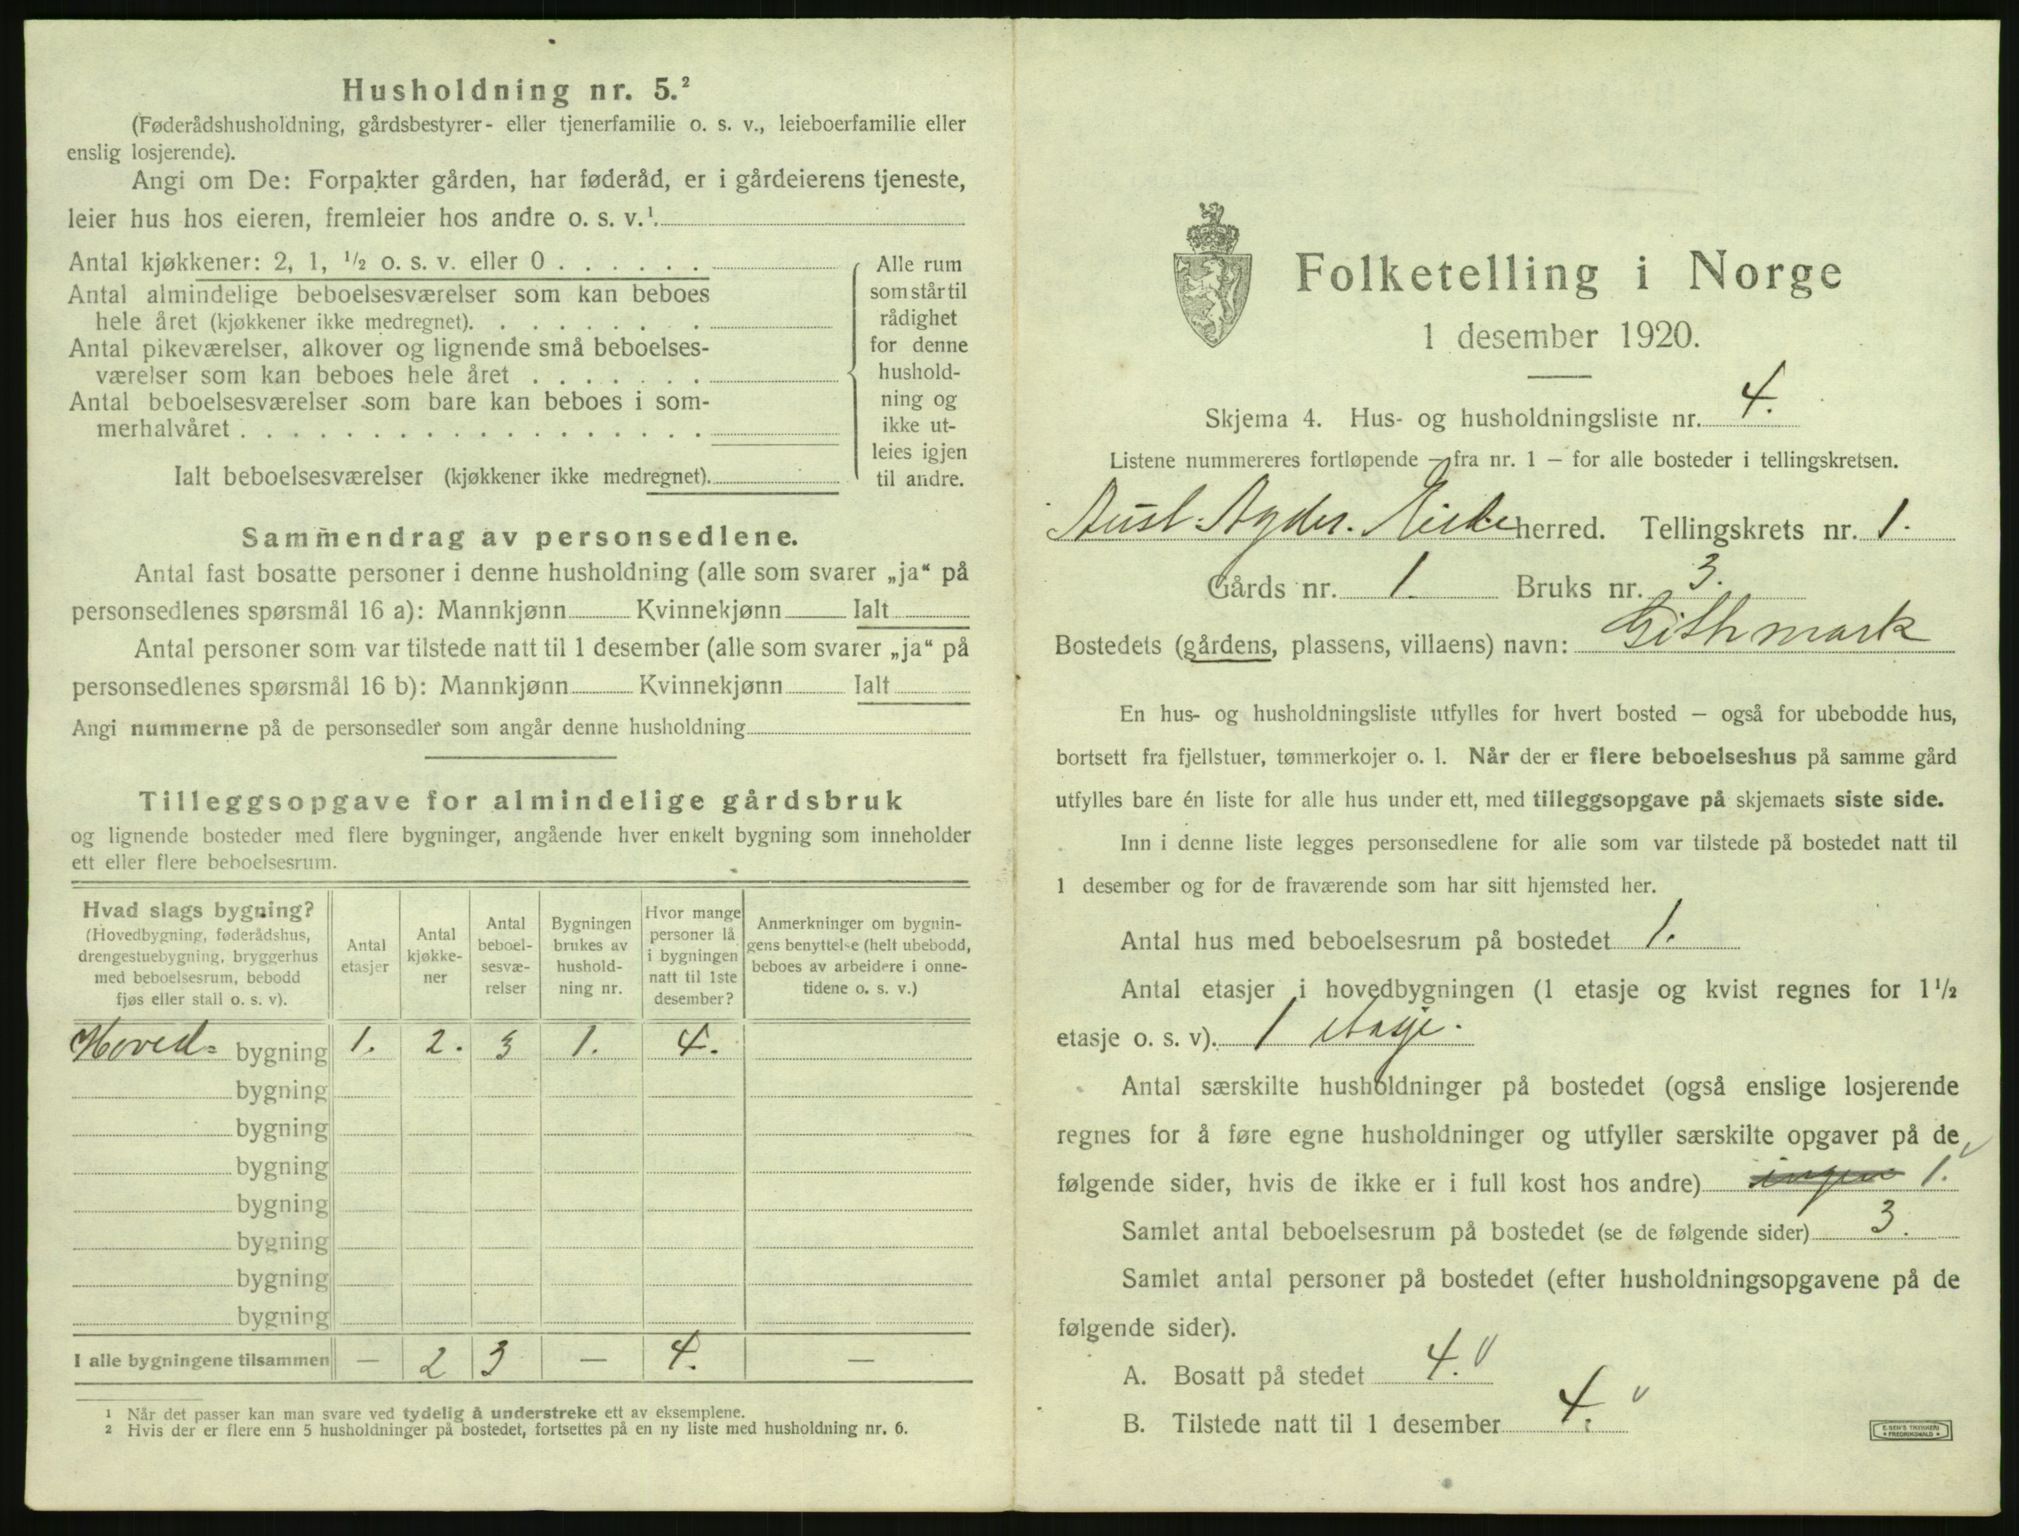 Husholdning nr. 5.²
(Føderådshusholdning, gårdsbestyrer- eller tjenerfamilie o. s. v., leieboerfamilie eller
enslig losjerende).
Angi om De: Forpakter gården, har føderåd, er i gårdeierens tjeneste,
leier hus hos eieren, fremleier hos andre o. s. v.¹.
Antal kjøkkener: 2, 1, ½ o. s. v. eller 0 . . . . . .
Antal almindelige beboelsesværelser som kan beboes
hele året (kjøkkener ikke medregnet). . . . . . . . .
Antal pikeværelser, alkover og lignende små beboelses-
værelser som kan beboes hele året . . . . . . .
Antal beboelsesværelser som bare kan beboes i som-
merhalvåret . . . . . . . . . . . . . . . . . .
Ialt beboelsesværelser (kjøkkener ikke medregnet).
Alle rum
som står til
rådighet
for denne
hushold-
ning og
ikke ut-
leies igjen
til andre.
Sammendrag av personsedlene.
Antal fast bosatte personer i denne husholdning (alle som svarer „ja“ på
personsedlenes spørsmål 16 a): Mannkjønn Kvinnekjønn Ialt
Antal personer som var tilstede natt til 1 desember (alle som svarer „ja“ på
personsedlenes spørsmål 16 b): Mannkjønn Kvinnekjønn Ialt
Angi nummerne på de personsedler som angår denne husholdning
Tilleggsopgave for almindelige gårdsbruk
og lignende bosteder med flere bygninger, angående hver enkelt bygning som inneholder
ett eller flere beboelsesrum.
Hvad slags bygning?
(Hovedbygning, føderådshus,
drengestuebygning, bryggerhus
med beboelsesrum, bebodd
fjøs eller stall o. s. v).
Antal
etasjer
Antal
kjøkke-
ner
Antal
beboel-
sesvæ-
relser
Bygningen
brukes av
hushold-
ning nr.
Hvor mange
personer lå
i bygningen
natt til 1ste
desember?
Anmerkninger om bygnin-
gens benyttelse (helt ubebodd,
beboes av arbeidere i onne-
tidene o. s. v.)
Hoved- bygning 1. 2. 3 1. 4.
bygning
bygning
bygning
bygning
bygning
bygning
bygning
I alle bygningene tilsammen — 2 3 — 4. —
¹ Når det passer kan man svare ved tydelig å understreke ett av eksemplene.
² Hvis der er flere enn 5 husholdninger på bostedet, fortsettes på en ny liste med husholdning nr. 6.
Folketelling i Norge
1 desember 1920.
Skjema 4. Hus- og husholdningsliste nr. 4.
Listene nummereres fortløpende — fra nr. 1 — for alle bosteder i tellingskretsen.
Aust-Agder. Eide herred. Tellingskrets nr. 1.
Gårds nr. 1. Bruks nr. 3.
Bostedets (gårdens, plassens, villaens) navn: Githmark
En hus- og husholdningsliste utfylles for hvert bosted — også for ubebodde hus,
bortsett fra fjellstuer, tømmerkojer o. l. Når der er flere beboelseshus på samme gård
utfylles bare én liste for alle hus under ett, med tilleggsopgave på skjemaets siste side.
Inn i denne liste legges personsedlene for alle som var tilstede på bostedet natt til
1 desember og for de fraværende som har sitt hjemsted her.
Antal hus med beboelsesrum på bostedet 1.
Antal etasjer i hovedbygningen (1 etasje og kvist regnes for 1½
etasje o. s. v). 1 etasje.
Antal særskilte husholdninger på bostedet (også enslige losjerende
regnes for å føre egne husholdninger og utfyller særskilte opgaver på de
følgende sider, hvis de ikke er i full kost hos andre) ingen 1.
Samlet antal beboelsesrum på bostedet (se de følgende sider) 3.
Samlet antal personer på bostedet (efter husholdningsopgavene på de
følgende sider).
A. Bosatt på stedet 4.
B. Tilstede natt til 1 desember 4.